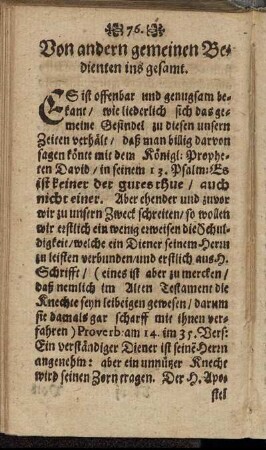 76.
Von andern gemeinen Be-
dienten ins gesamt.
ES ist offenbar und genugsam be-
kant / wie liederlich sich das ge-
meine Gesindel zu diesen unsern
Zeiten verhält / daß man billig darvon
sagen könte mit dem Königl: Prophe-
ten David / in seinem 13. Psalm: Es
ist keiner der gutes thue / auch
nicht einer. Aber ehender und zuvor
wir zu unsern Zweck schreiten / so wollen
wir erstlich ein wenig erweisen die Schul-
digkeit / welche ein Diener seinem Herrn
zu leisten verbunden / und erstlich aus H.
Schrifft / (eines ist aber zu mercken /
daß nemlich im Alten Testament die
Knechte seyn leibeigen gewesen / darum
sie damals gar scharff mit ihnen ver-
fahren) Proverb: am 14. im 35. Vers:
Ein verständiger Diener ist seinē Herrn
angenehm: aber ein unnützer Knecht
wird seinen Zorn tragen. Der H. Apo-
stel